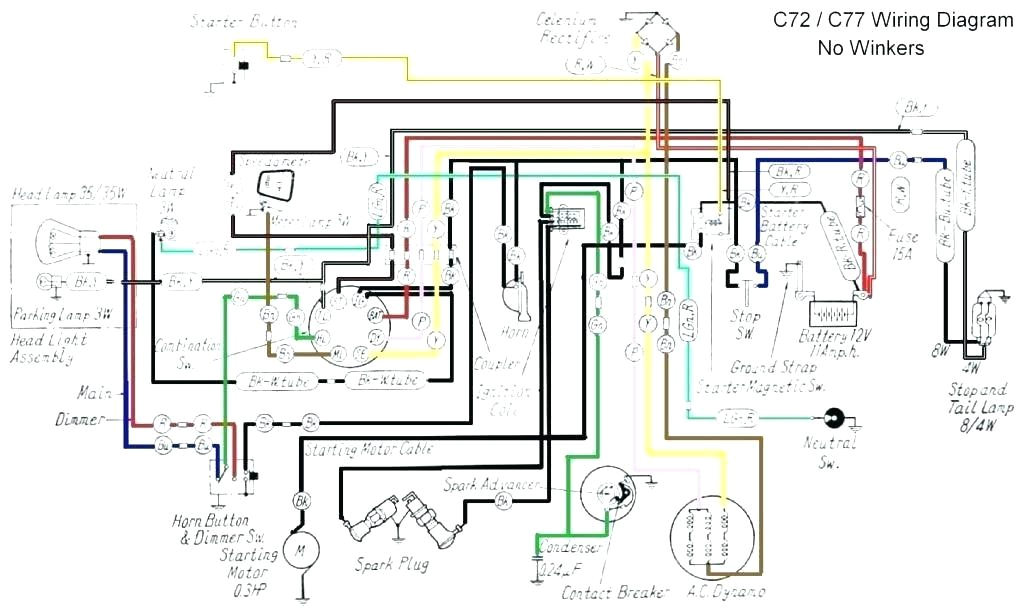 C72 / C77 Wiring Diagram
No Winkers
Starter Button
Y,R
Celenium
Rectifire
R,N
Y
Bn
Bk,Y
Speedometer
Neutral
Lamp
3W
Bk,Y
Head Lamp 35/35W
Bk,R
Y,R
Starter
Battery
Cable
Bk-R.tube
R,N
Fuse
15A
Bk-Bu.tube
Bk-tube
Bk,Y
Bk,Y
Parking Lamp 3W
Head Light
Assembly
Combination
Sw.
HL
BAT
Horn
Coupler
Ignition
Coil
LG,R
Stop
Sw.
Battery 12V
11Amp.h.
Ground Strap
Starter Magnetic Sw.
8W
4W
Stop and
Tail Lamp
8/4W
Main
Dimmer
Bk-W.tube
Bk-W.tube
LG-R
Neutral
Sw.
Starting Motor Cable
Spark Advancer
Bk
Bk
Horn Button
& Dimmer Sw.
Starting
Motor
0.3HP
M
Spark Plug
Condenser
0.24μF
Contact Breaker
A.C. Dynamo